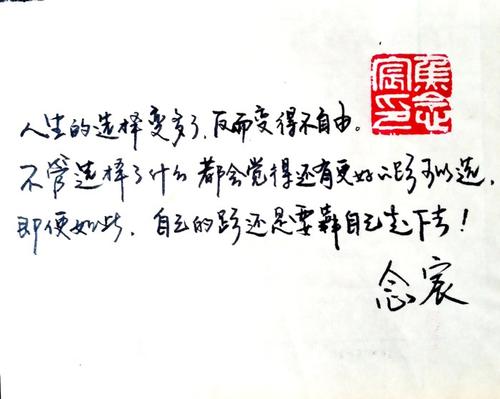 焦念
宸印
人生的选择变多了,反而变得不自由。
不管选择了什么都会觉得还有更好的路可以选,
即便如此,自己的路还是要靠自己走下去!
念宸